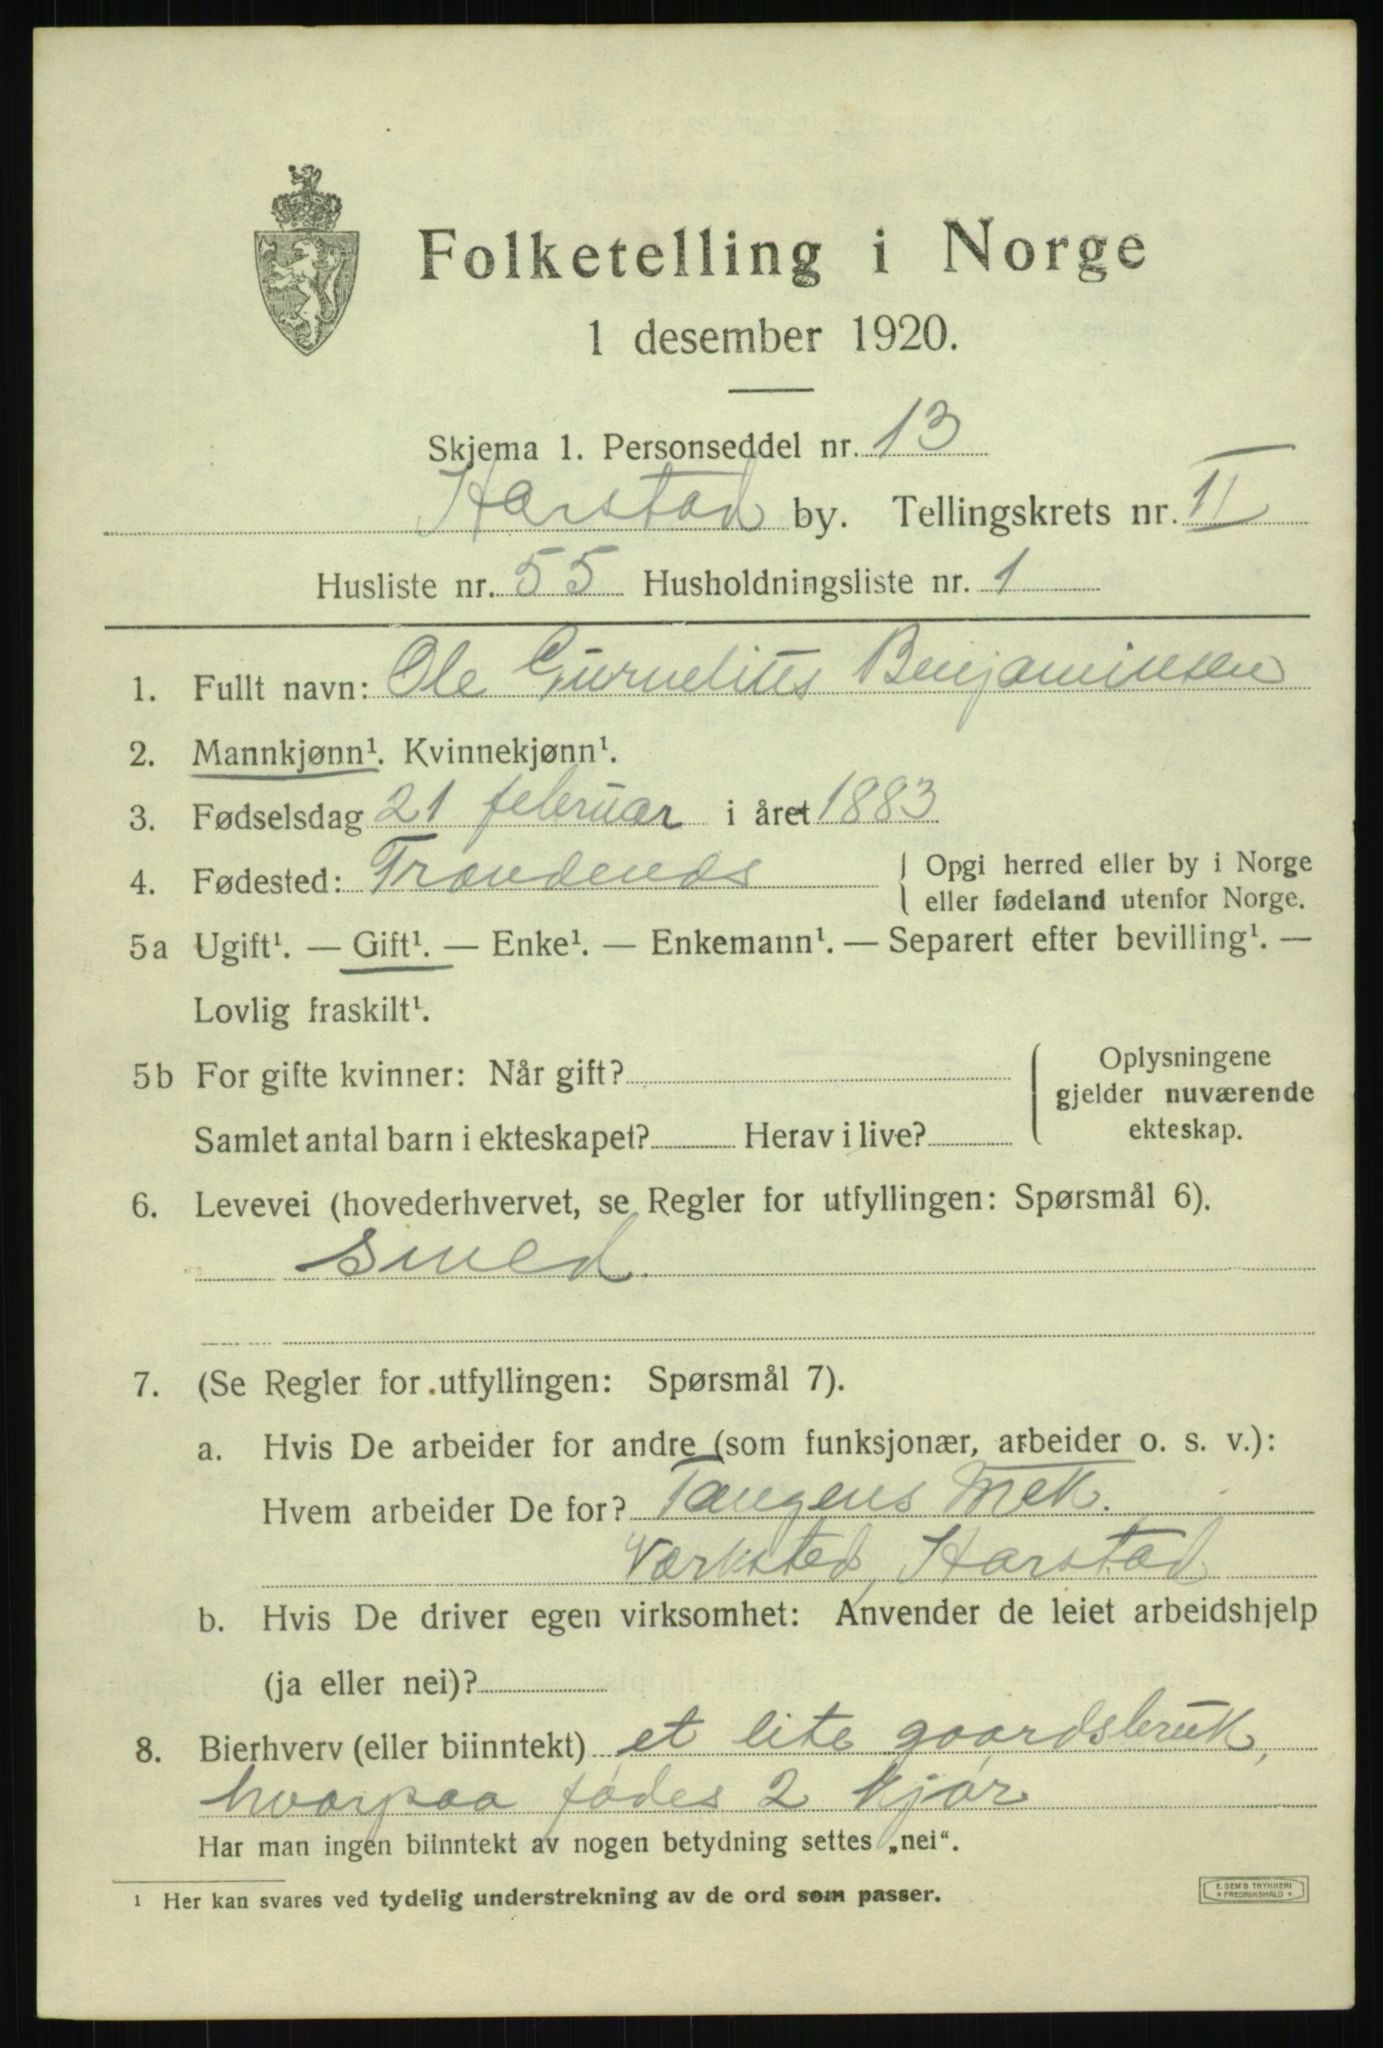 Folketelling i Norge
1 desember 1920.
Skjema 1. Personseddel nr. 13
Harstad by. Tellingskrets nr. II
Husliste nr. 55 Husholdningsliste nr. 1
1. Fullt navn: Ole Benjaminsen
2. Mannkjønn¹. Kvinnekjønn¹.
3. Fødselsdag 21 februar i året 1883
4. Fødested: Trondenes
Opgi herred eller by i Norge
eller fødeland utenfor Norge.
5a Ugift¹. — Gift¹. — Enke¹. — Enkemann¹. — Separert efter bevilling¹. —
Lovlig fraskilt¹.
5b For gifte kvinner: Når gift?
Samlet antal barn i ekteskapet? Herav i live?
Oplysningene
gjelder nuværende
ekteskap.
6. Levevei (hovederhvervet, se Regler for utfyllingen: Spørsmål 6).
Smed
7. (Se Regler for utfyllingen: Spørsmål 7).
a. Hvis De arbeider for andre (som funksjonær, arbeider o. s. v.):
Hvem arbeider De for? Tangens Mek.
Værksted, Harstad
b. Hvis De driver egen virksomhet: Anvender de leiet arbeidshjelp
(ja eller nei)?
8. Bierhverv (eller biinntekt) et lite gaardsbruk,
hvorpaa fødes 2 kjør
Har man ingen biinntekt av nogen betydning settes „nei“.
¹ Her kan svares ved tydelig understrekning av de ord som passer.
E. SEM'S TRYKKERI
FREDRIKSHALD